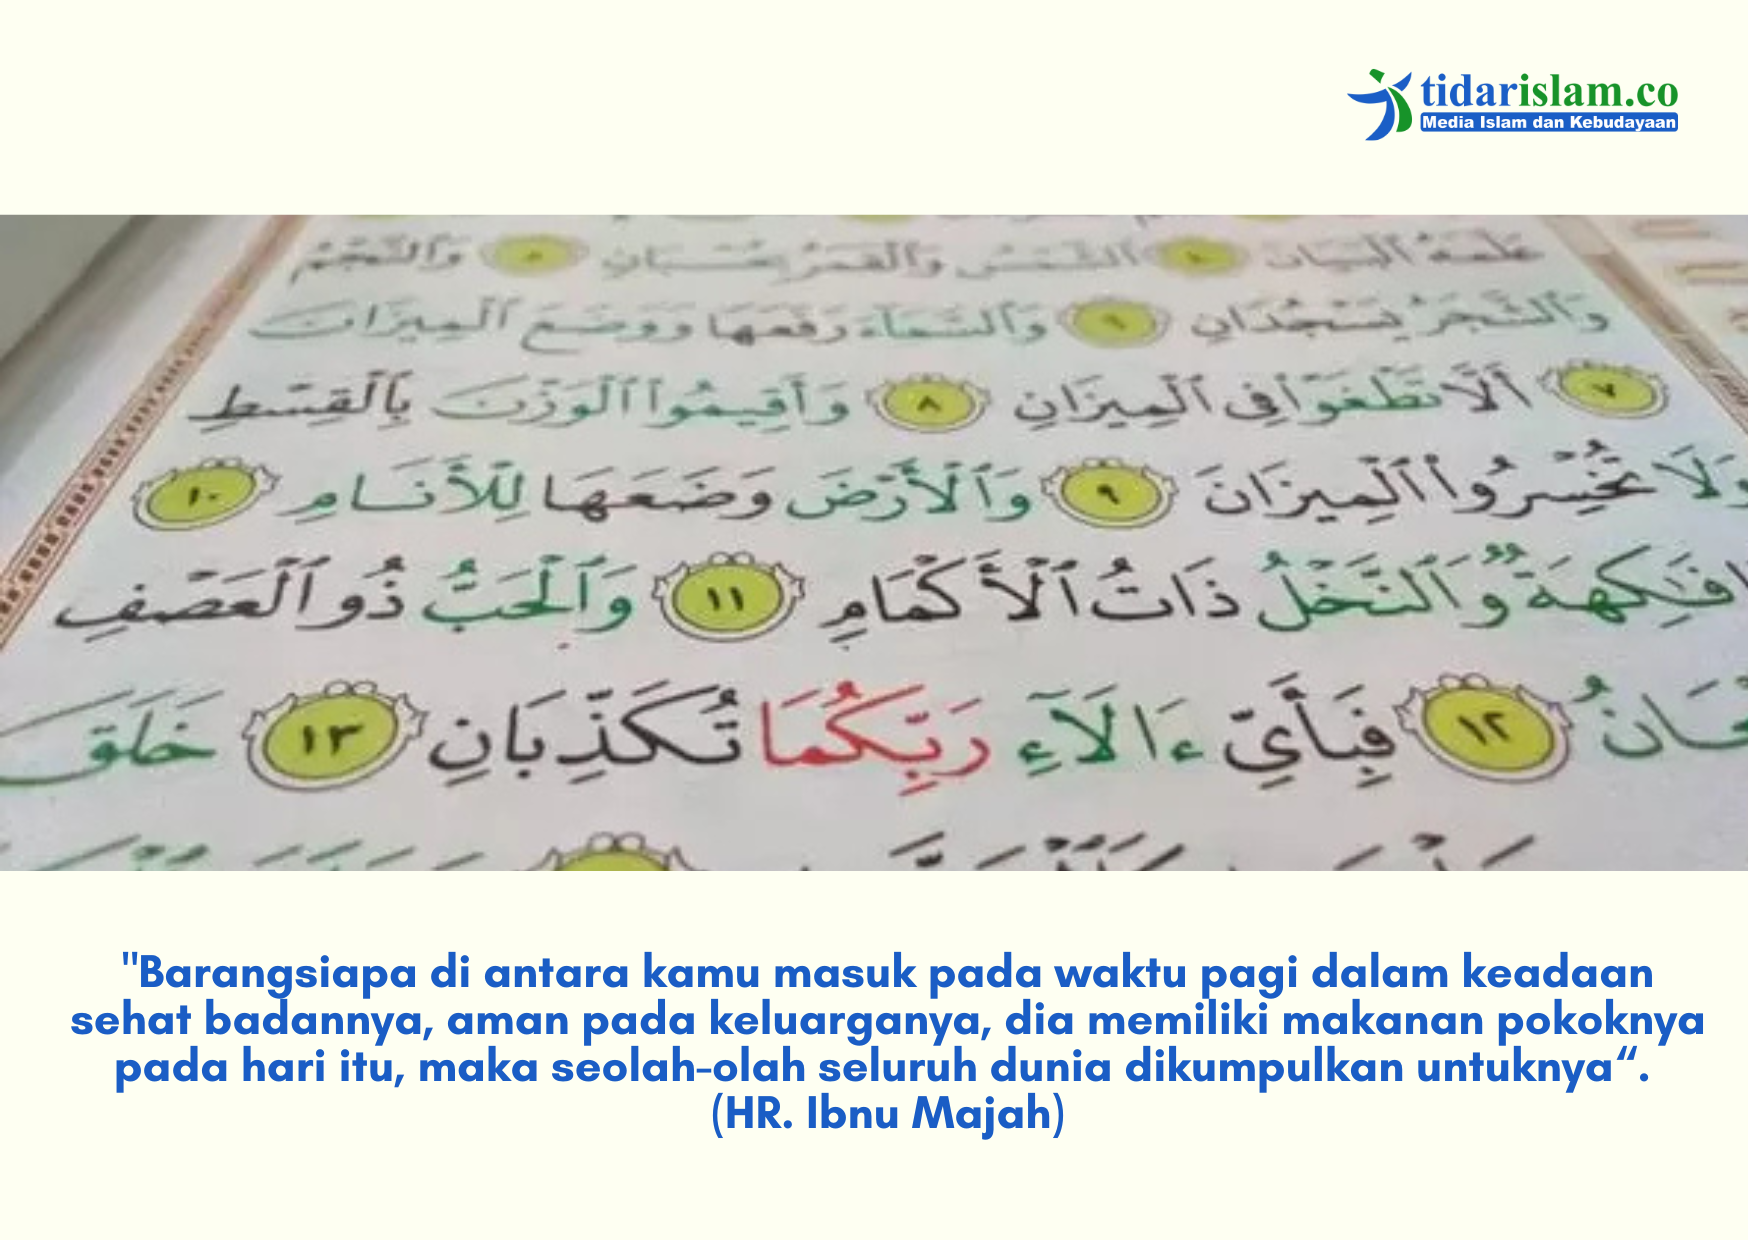 tidarislam.co
Media Islam dan Kebudayaan
عَلَّمَهُ ٱلْبَيَانَ ٤ ٱلشَّمْسُ وَٱلْقَمَرُ بِحُسْبَانٍ ٥ وَٱلنَّجْمُ
وَٱلشَّجَرُ يَسْجُدَانِ ٦ وَٱلسَّمَآءَ رَفَعَهَا وَوَضَعَ ٱلْمِيزَانَ
٧ أَلَّا تَطْغَوْا۟ فِى ٱلْمِيزَانِ ٨ وَأَقِيمُوا۟ ٱلْوَزْنَ بِٱلْقِسْطِ
وَلَا تُخْسِرُوا۟ ٱلْمِيزَانَ ٩ وَٱلْأَرْضَ وَضَعَهَا لِلْأَنَامِ ١٠
فَٰكِهَةٌ وَٱلنَّخْلُ ذَاتُ ٱلْأَكْمَامِ ١١ وَٱلْحَبُّ ذُو ٱلْعَصْفِ
١٢ فَبِأَىِّ ءَالَآءِ رَبِّكُمَا تُكَذِّبَانِ ١٣ خَلَقَ
"Barangsiapa di antara kamu masuk pada waktu pagi dalam keadaan
sehat badannya, aman pada keluarganya, dia memiliki makanan pokoknya
pada hari itu, maka seolah-olah seluruh dunia dikumpulkan untuknya“.
(HR. Ibnu Majah)